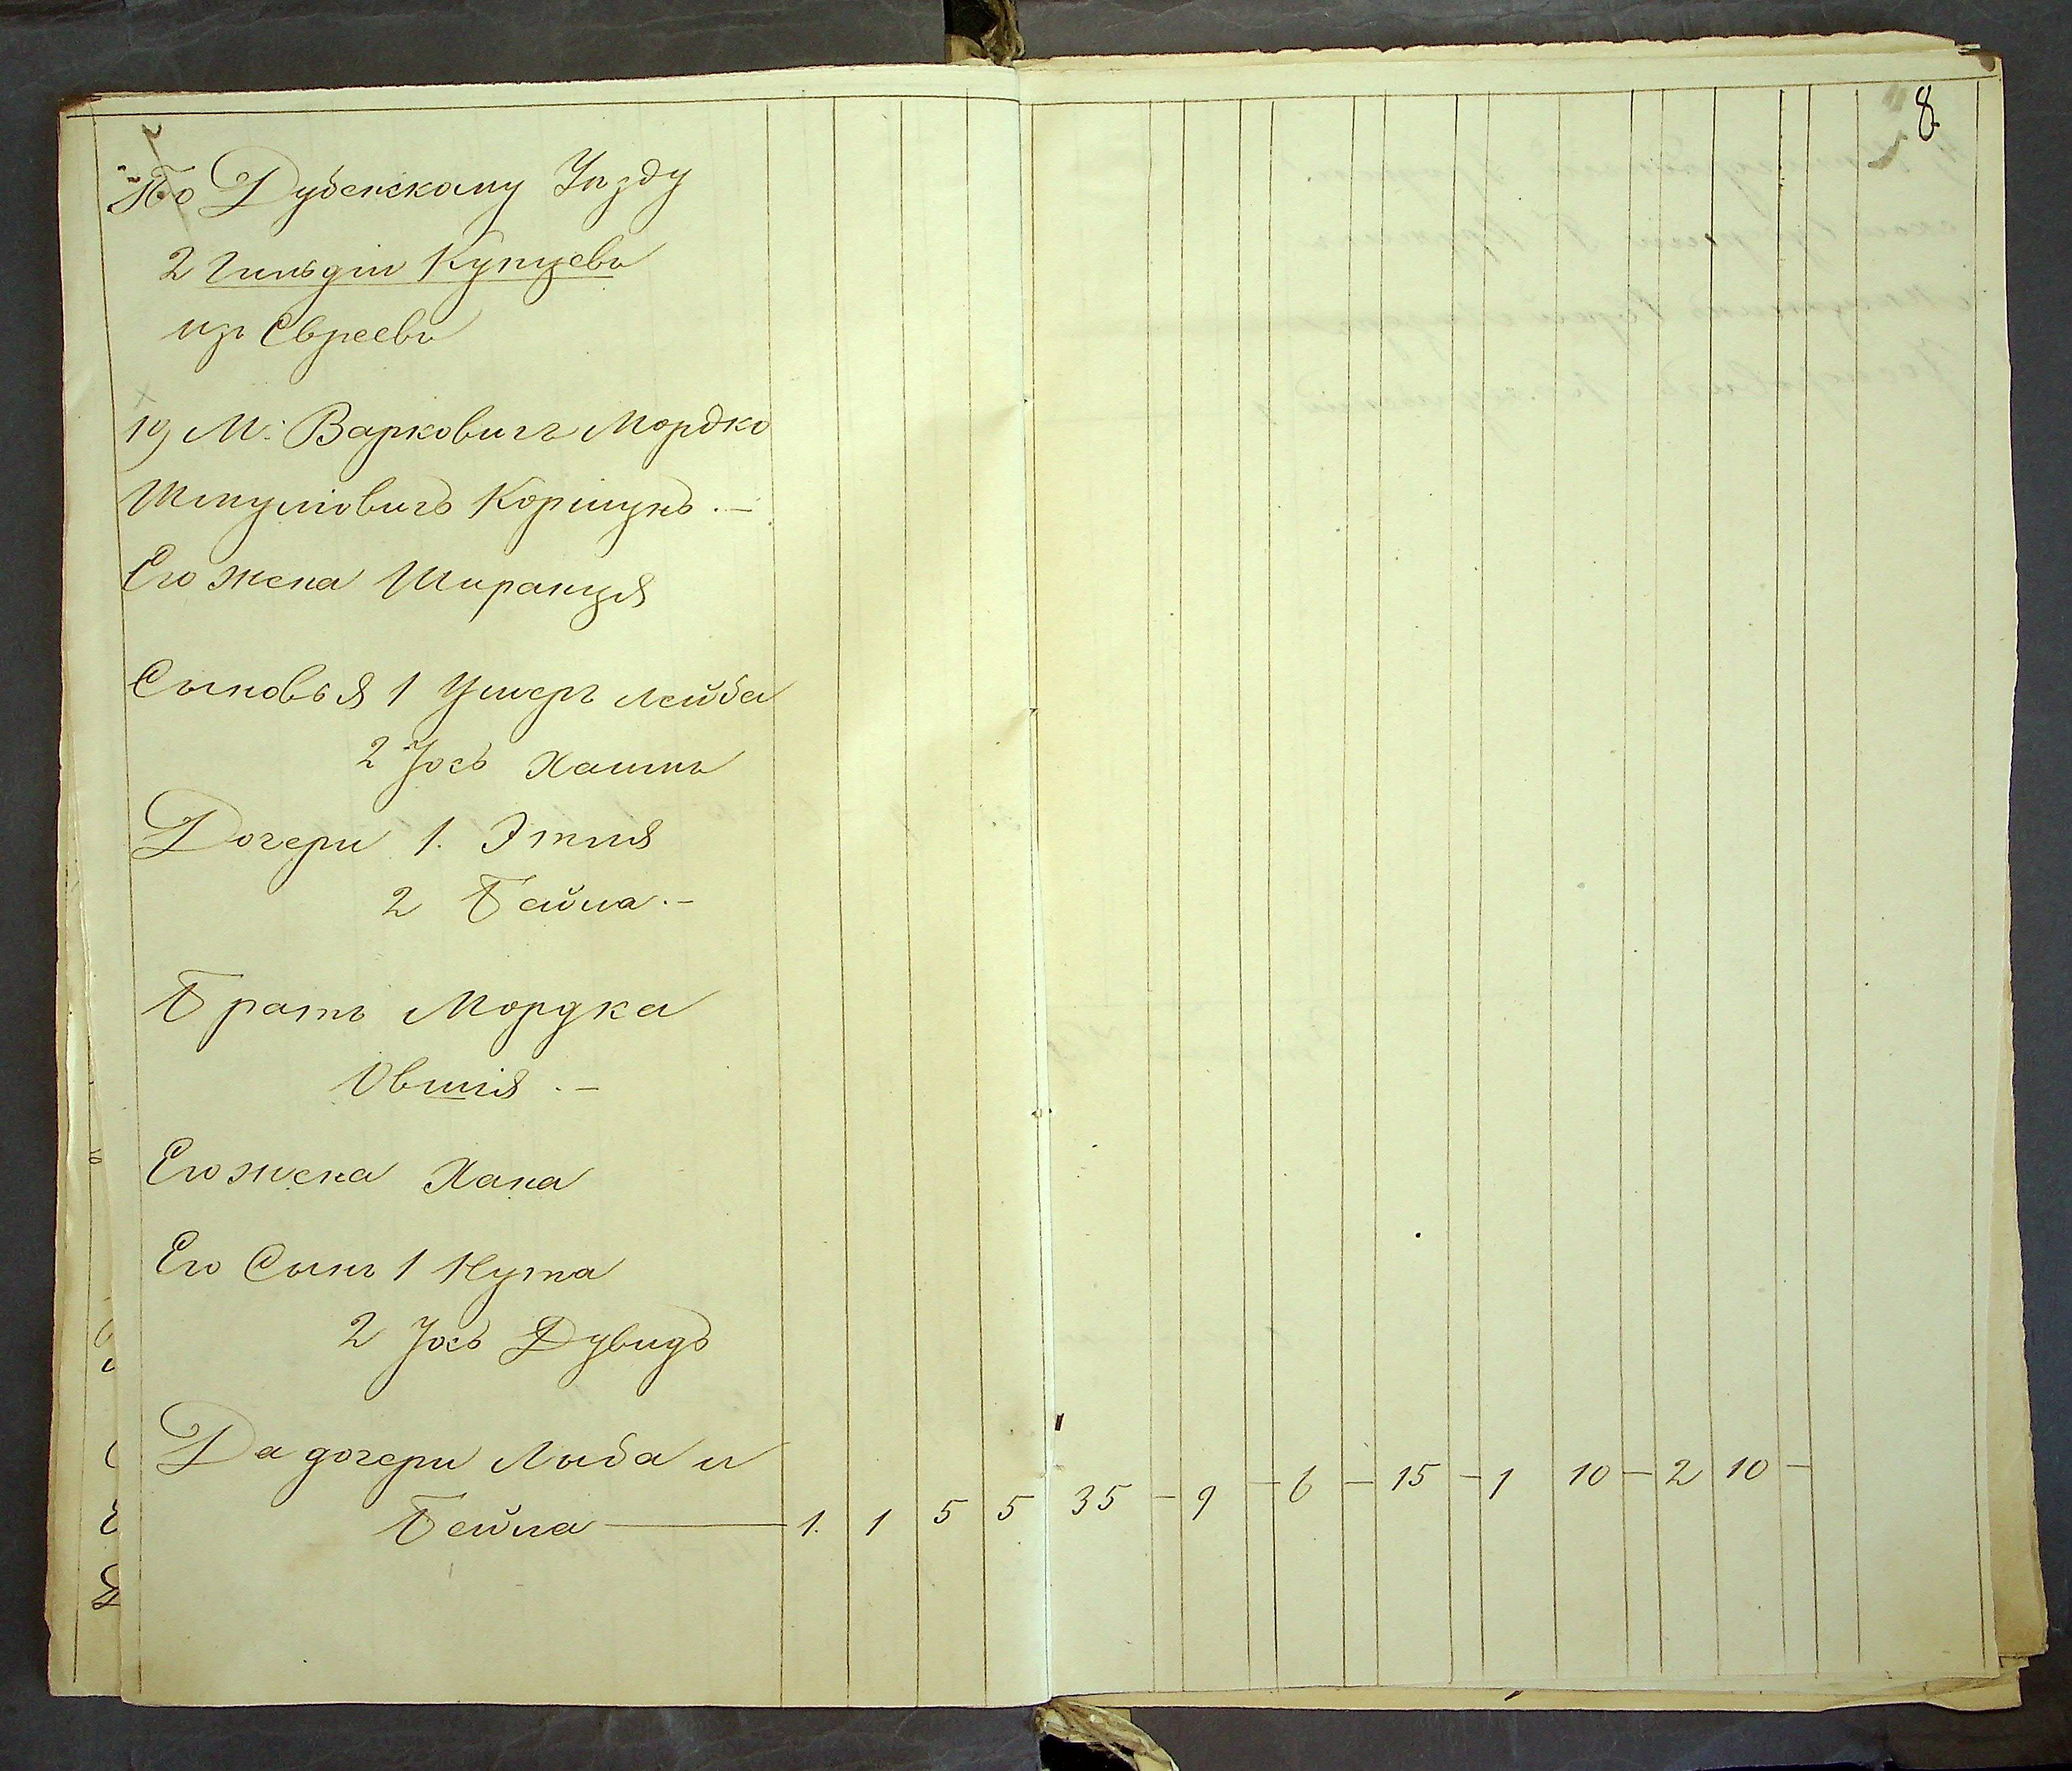 8.
По Дубенскому Уѣзду
2 Гильдіи Купцевъ
изъ Евреевъ
19 М: Варковичъ Мордко
Шмулiовичъ Коршунъ. —
Его жена Ширанця
Сыновья 1 Ушеръ Лейба
2 Іось Хаимъ
Дочери 1. Этля
2 Бейла. —
Братъ Мордка
Овшія. —
Его жена Хана
Его Сынъ 1 Нута
2 Іось Дувидъ
Да дочери Либа и
Бейла — 1. 1 5 5 35 — 9 — 6 — 15 — 1 10 — 2 10 —